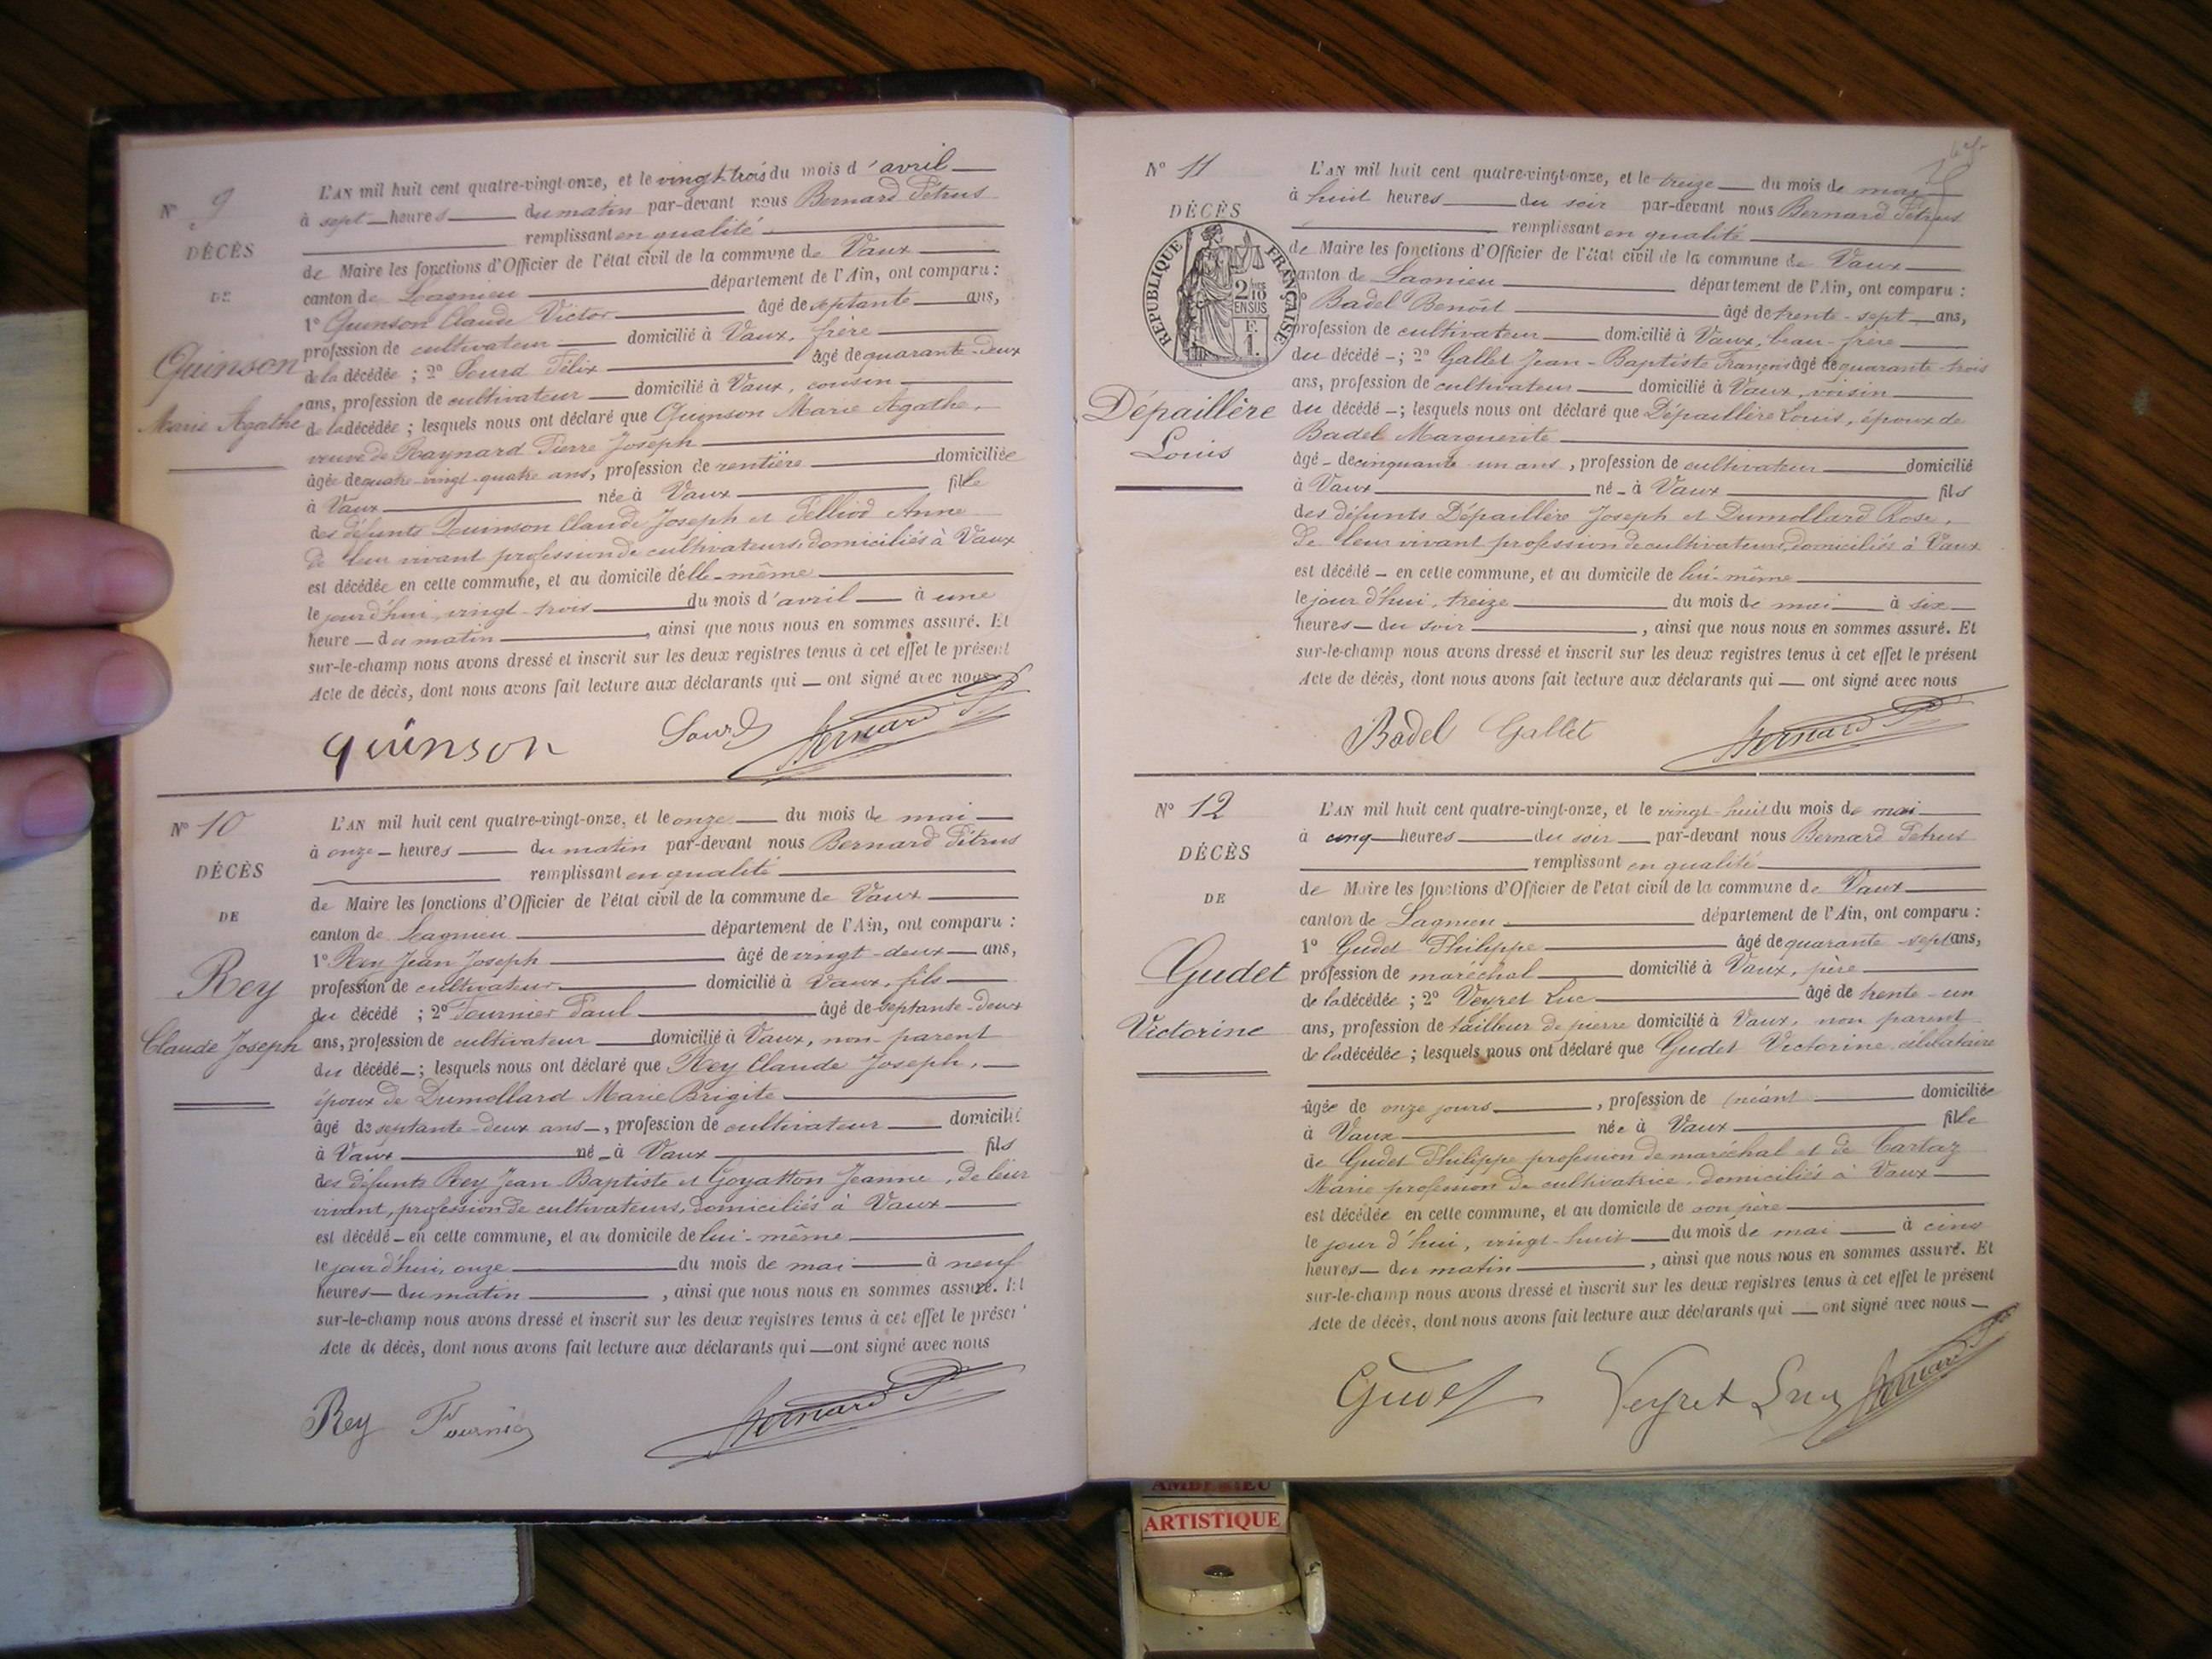 N° 9
DÉCÈS
DE
Quinson
Marie Agathe
L'AN mil huit cent quatre-vingt-onze, et le vingt-trois du mois d'avril
à sept heures du matin par-devant nous Bernard Pétrus
remplissant en qualité
de Maire les fonctions d'Officier de l'état civil de la commune de Vaux
canton de Lagnieu département de l'Ain, ont comparu :
1° Quinson Claude Victor âgé de septante ans,
profession de cultivateur domicilié à Vaux, frère
de la décédée ; 2° Sourd Félix âgé de quarante-deux
ans, profession de cultivateur domicilié à Vaux, cousin
de la décédée ; lesquels nous ont déclaré que Quinson Marie Agathe,
veuve de Raynard Pierre Joseph
âgée de quatre-vingt-quatre ans, profession de rentière domiciliée
à Vaux née à Vaux fille
des défunts Quinson Claude Joseph et Pelliod Anne
de leur vivant profession de cultivateurs, domiciliés à Vaux
est décédée en cette commune, et au domicile d'elle-même
le jourd'hui, vingt-trois du mois d'avril à une
heure du matin , ainsi que nous nous en sommes assuré. Et
sur-le-champ nous avons dressé et inscrit sur les deux registres tenus à cet effet le présent
Acte de décès, dont nous avons fait lecture aux déclarants qui — ont signé avec nous
quinson Sourd Bernard P
N° 10
DÉCÈS
DE
Rey
Claude Joseph
L'AN mil huit cent quatre-vingt-onze, et le onze du mois de mai
à onze heures du matin par-devant nous Bernard Pétrus
remplissant en qualité
de Maire les fonctions d'Officier de l'état civil de la commune de Vaux
canton de Lagnieu département de l'Ain, ont comparu :
1° Rey Jean Joseph âgé de vingt-deux ans,
profession de cultivateur domicilié à Vaux, fils
du décédé ; 2° Fournier Paul âgé de septante-deux
ans, profession de cultivateur domicilié à Vaux, non-parent
du décédé ; lesquels nous ont déclaré que Rey Claude Joseph,
époux de Dumollard Marie Brigite
âgé de septante-deux ans, profession de cultivateur domicilié
à Vaux né à Vaux fils
des défunts Rey Jean-Baptiste et Goyatton Jeanne, de leur
vivant, profession de cultivateurs, domiciliés à Vaux
est décédé en cette commune, et au domicile de lui-même
le jourd'hui, onze du mois de mai à neuf
heures du matin , ainsi que nous nous en sommes assuré. Et
sur-le-champ nous avons dressé et inscrit sur les deux registres tenus à cet effet le présen
Acte de décès, dont nous avons fait lecture aux déclarants qui — ont signé avec nous
Rey Fournier Bernard P
N° 11
DÉCÈS
RÉPUBLIQUE FRANÇAISE
2/10
EN SUS
1 F.
Dépaillère
Louis
L'AN mil huit cent quatre-vingt-onze, et le treize du mois de mai
à huit heures du soir par-devant nous Bernard Pétrus
remplissant en qualité
de Maire les fonctions d'Officier de l'état civil de la commune de Vaux
canton de Lagnieu département de l'Ain, ont comparu :
1° Badel Benoit âgé de trente-sept ans,
profession de cultivateur domicilié à Vaux, beau-frère
du décédé ; 2° Gallet Jean-Baptiste François âgé de quarante-trois
ans, profession de cultivateur domicilié à Vaux, voisin
du décédé ; lesquels nous ont déclaré que Dépaillère Louis, époux de
Badel Marguerite
âgé de cinquante-un ans, profession de cultivateur domicilié
à Vaux né à Vaux fils
des défunts Dépaillère Joseph et Dumollard Rose,
de leur vivant profession de cultivateurs, domiciliés à Vaux
est décédé en cette commune, et au domicile de lui-même
le jour d'hui, treize du mois de mai à six
heures du soir , ainsi que nous nous en sommes assuré. Et
sur-le-champ nous avons dressé et inscrit sur les deux registres tenus à cet effet le présent
Acte de décès, dont nous avons fait lecture aux déclarants qui — ont signé avec nous
Badel Gallet Bernard P
N° 12
DÉCÈS
DE
Gudet
Victorine
L'AN mil huit cent quatre-vingt-onze, et le vingt-huit du mois de mai
à cinq heures du soir par-devant nous Bernard Pétrus
remplissant en qualité
de Maire les fonctions d'Officier de l'état civil de la commune de Vaux
canton de Lagnieu département de l'Ain, ont comparu :
1° Gudet Philippe âgé de quarante-sept ans,
profession de maréchal domicilié à Vaux, père
de la décédée ; 2° Veyret Luc âgé de trente-un
ans, profession de tailleur de pierre domicilié à Vaux, non parent
de la décédée ; lesquels nous ont déclaré que Gudet Victorine célibataire
âgée de onze jours , profession de (néant domiciliée
à Vaux née à Vaux fille
de Gudet Philippe profession de maréchal et de Cartaz
Marie profession de cultivatrice, domiciliés à Vaux
est décédée en cette commune, et au domicile de son père
le jour d'hui, vingt-huit du mois de mai à cinq
heures du matin , ainsi que nous nous en sommes assuré. Et
sur-le-champ nous avons dressé et inscrit sur les deux registres tenus à cet effet le présent
Acte de décès, dont nous avons fait lecture aux déclarants qui — ont signé avec nous
Gudet Veyret Luc Bernard P
ARTISTIQUE